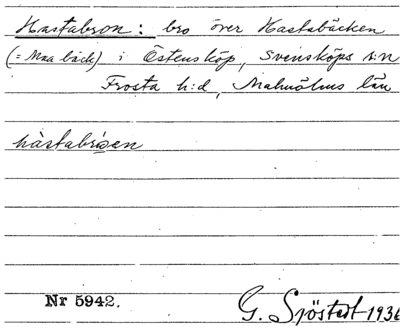 Hästabron: bro över Hästabäcken
(= Maa bäck) i Östensköp, Svensköps s:n
Frosta h:d, Malmöhus län
hàstabrǿen
Nr 5942. G. Sjöstedt 1936